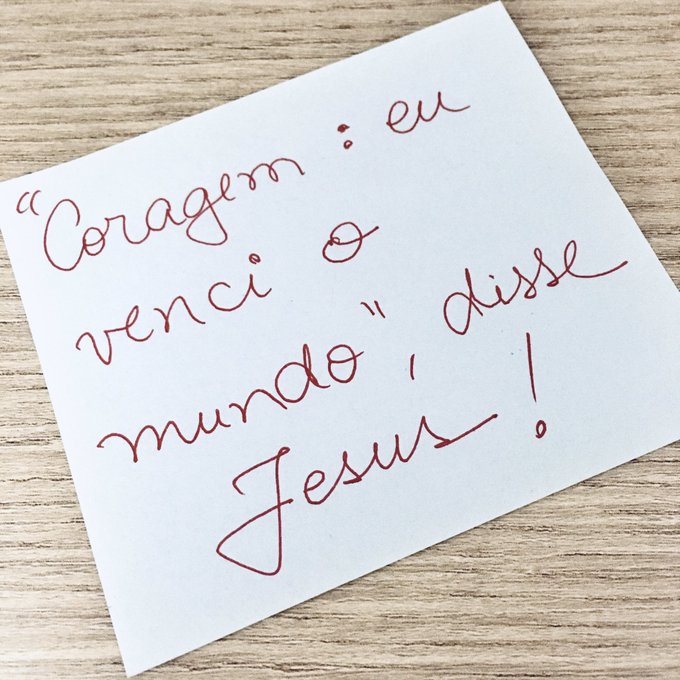 “Coragem : eu
venci o
mundo”, disse
Jesus!